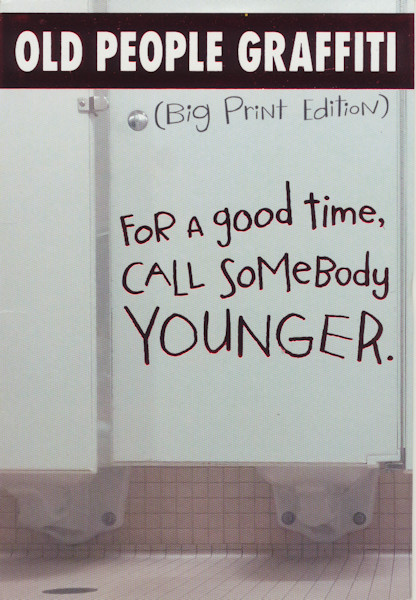 OLD PEOPLE GRAFFITI
(Big Print Edition)
FoR A good time,
CALL SoMeBody
YOUNGER.